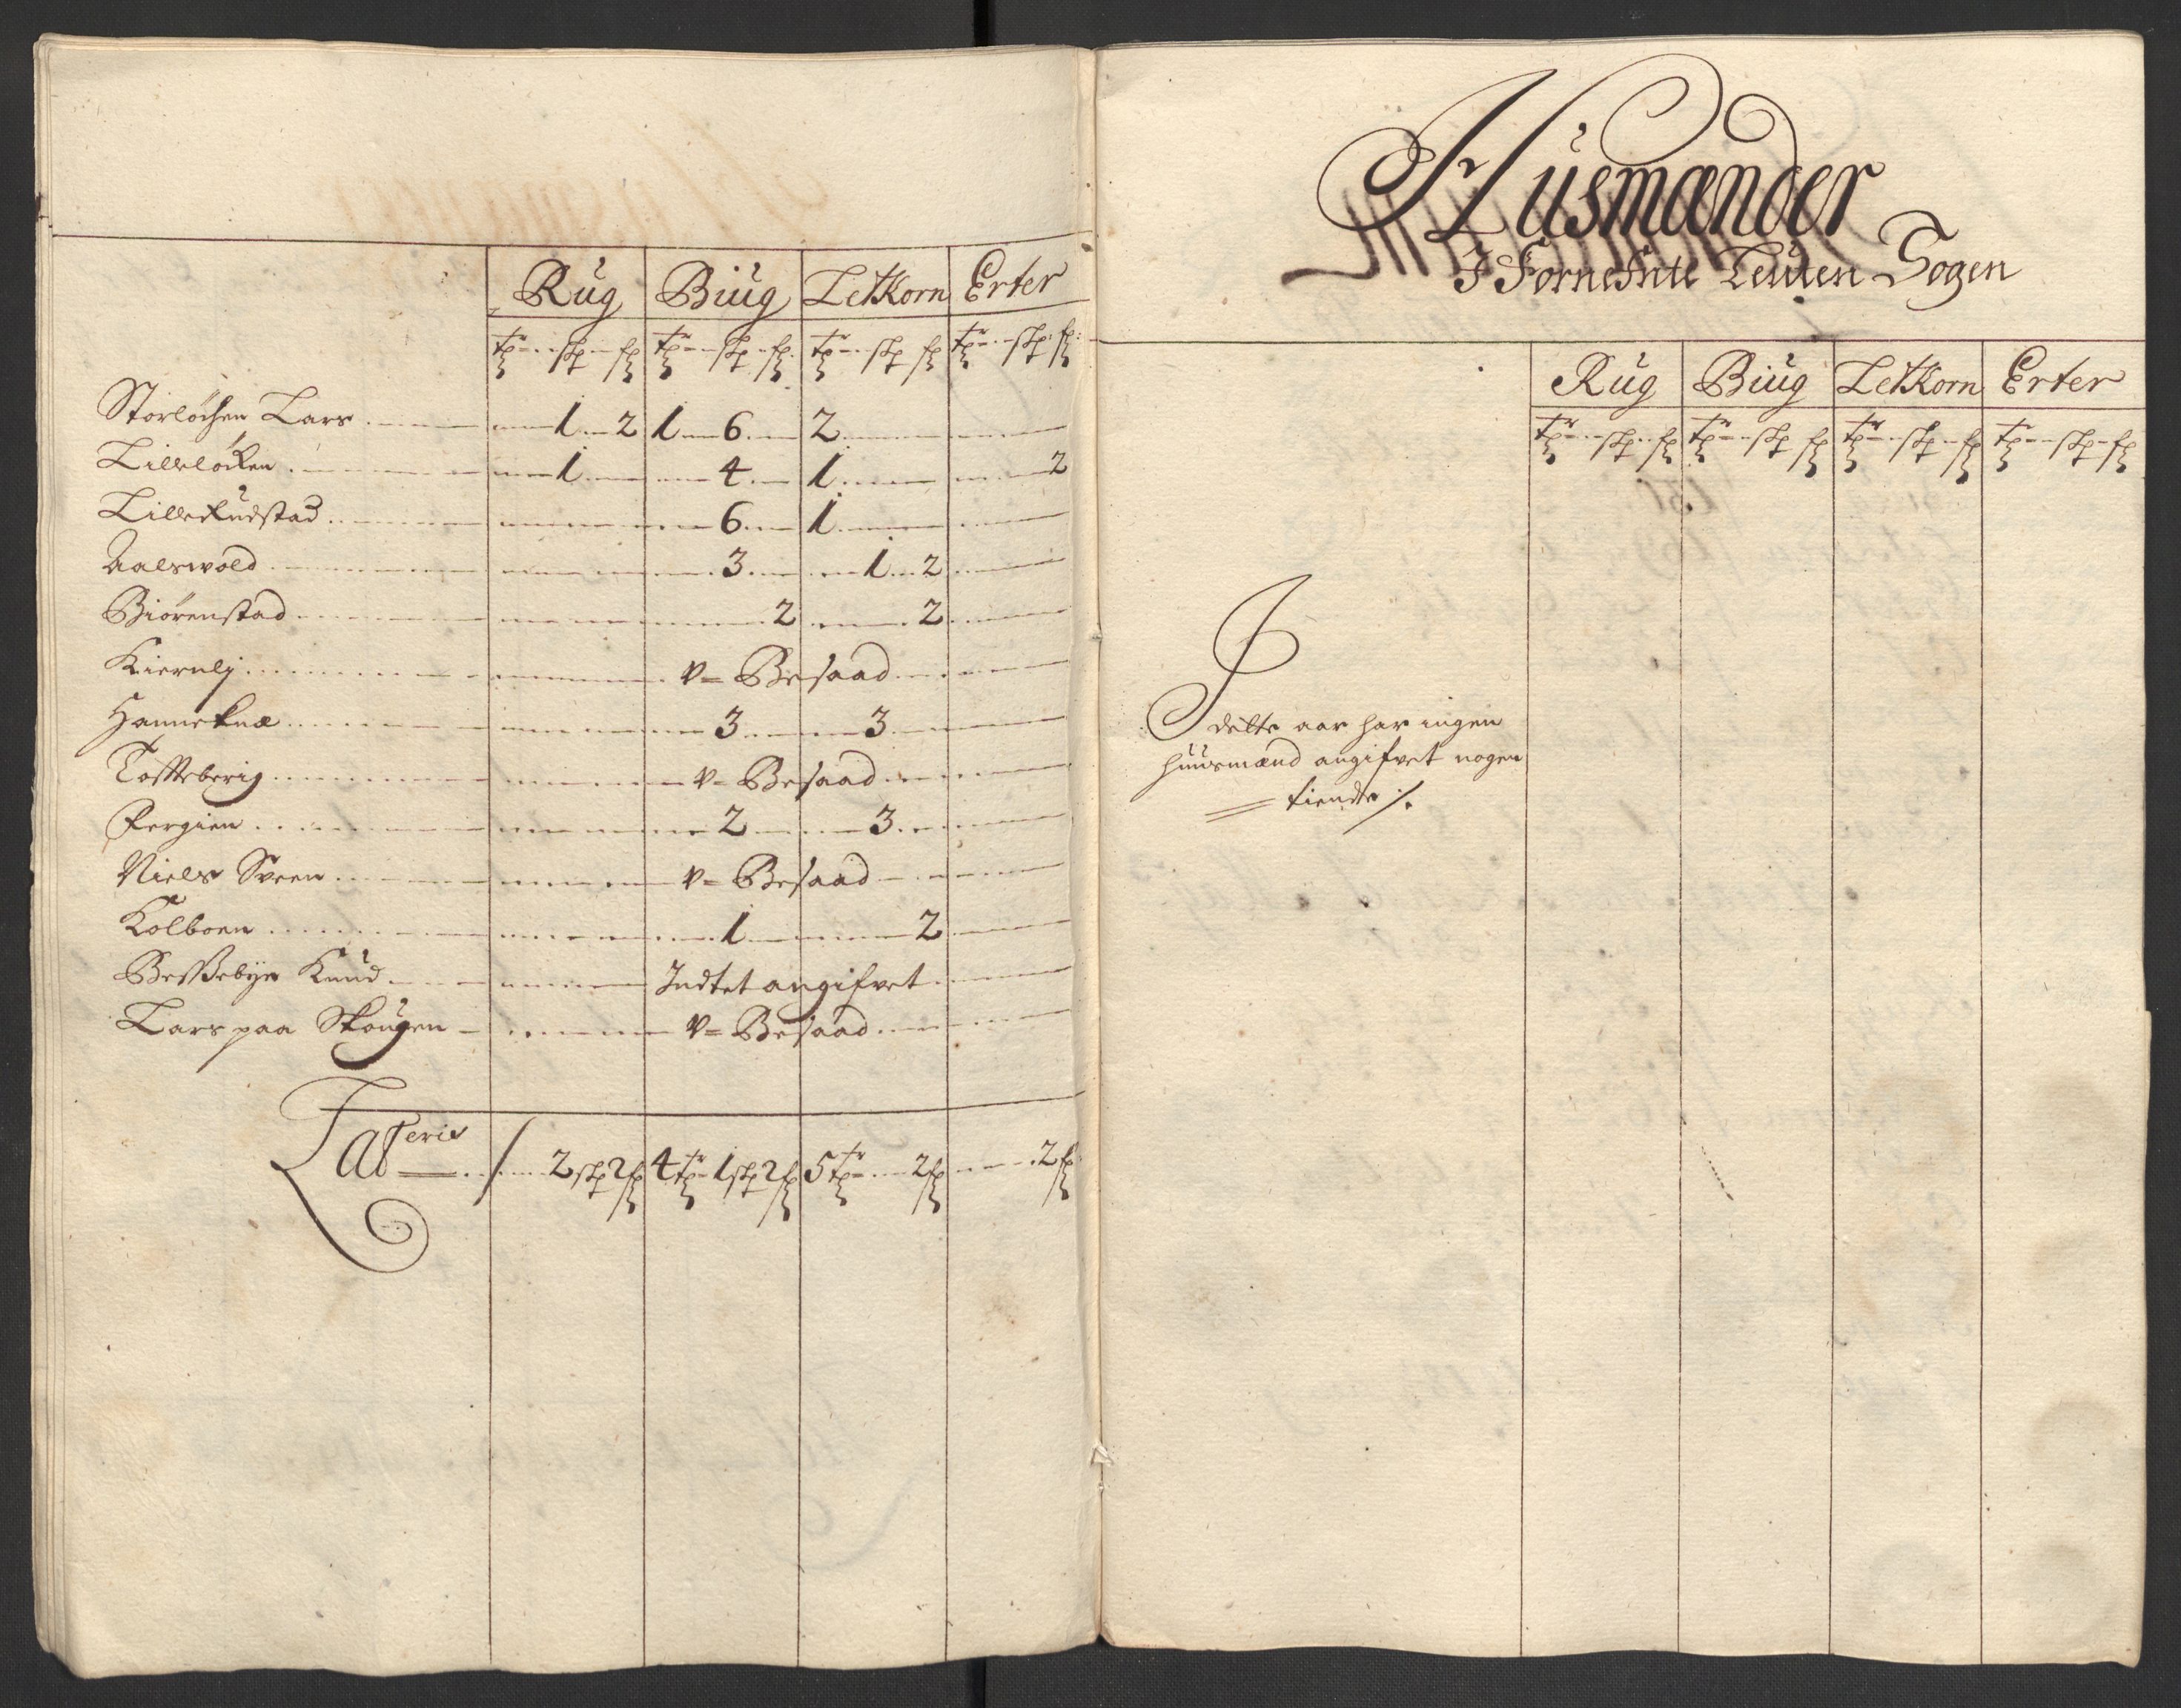 Rug Biug LetKorn Erter
tr skp fk tr skp fk tr skp fk tr skp fk
Storløchen Lars 1 2 1 6 2
Lilleløcken 1 4 1 2
Lillerudstad 6 1
Aalswold 3 1 2
Biørenstad 2 2
Kiernlj v= Besaad
Hanneknæ 3 3
Tofteberig v= Besaad
Fergien 2 3
Niels Sveen v= Besaad
Kolboen 1 2
Besßebye Knud Indtet angifvet
Lars paa Skougen v= Besaad
Lateris 2 skp 2 fk 4 tr 1 skp 2 fk 5 tr 2 fk 2 fk
Husmænder
I Fornefnte Sogen
Rug Biug LetKorn Erter
tr skp fk tr skp fk tr skp fk tr skp fk
I dette aar har ingen
huusmænd angifvet nogen
tiende ./.